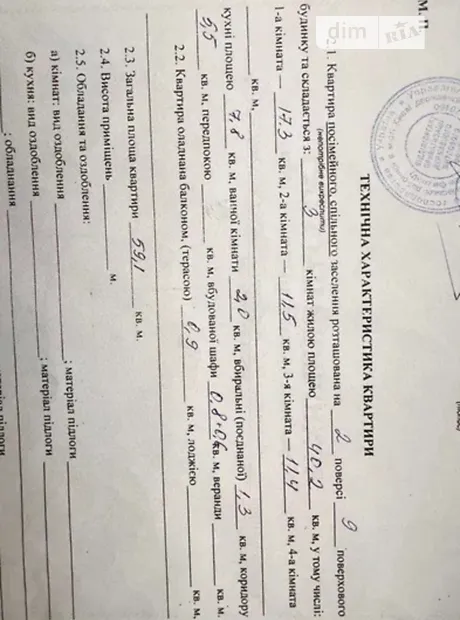 М. П.
dim RIA
ТЕХНІЧНА ХАРАКТЕРИСТИКА КВАРТИРИ
2.1. Квартира посімейного, спільного заселення розташована на 2 поверсі 9 поверхового
(непотрібне викреслити)
будинку та складається з: 3 кімнат жилою площею 40,2 кв. м, у тому числі:
1-а кімната — 17.3 кв. м, 2-а кімната — 11,5 кв. м, 3-я кімната — 11,4 кв. м, 4-а кімната
кв. м,
кухні площею 7,8 кв. м, ванної кімнати 2,0 кв. м, вбиральні (поєднаної) 1,3 кв. м, коридору
5,5 кв. м, передпокою кв. м, вбудованої шафи 0,8+0,6 кв. м, веранди кв. м,
2.2. Квартира оладнана балконом, (терасою) 0,9 кв. м, лоджією кв. м,
2.3. Загальна площа квартири 59,1 кв. м.
2.4. Висота приміщень м.
2.5. Обладнання та оздоблення:
а) кімнат: вид оздоблення ; матеріал підлоги
б) кухня: вид оздоблення ; матеріал підлоги
; обладнання